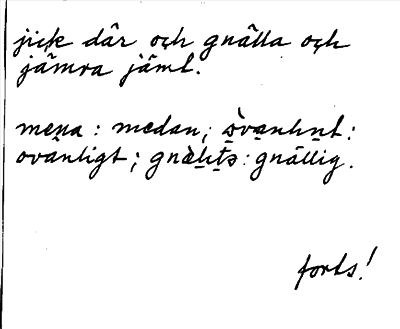 jick där och gnälla och
jämra jämt.
mena : medan; òvanlint :
ovanligt ; : gnällig.
forts!